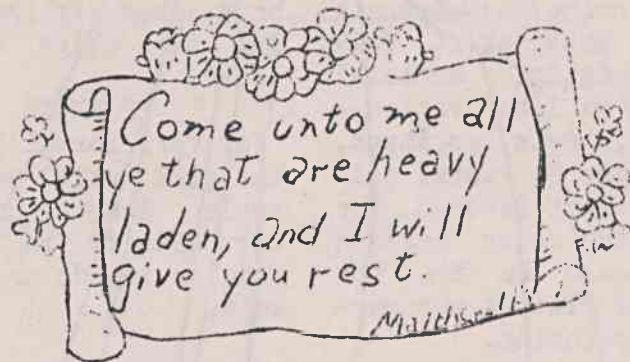 Come unto me all
ye that are heavy
laden, and I will
give you rest.